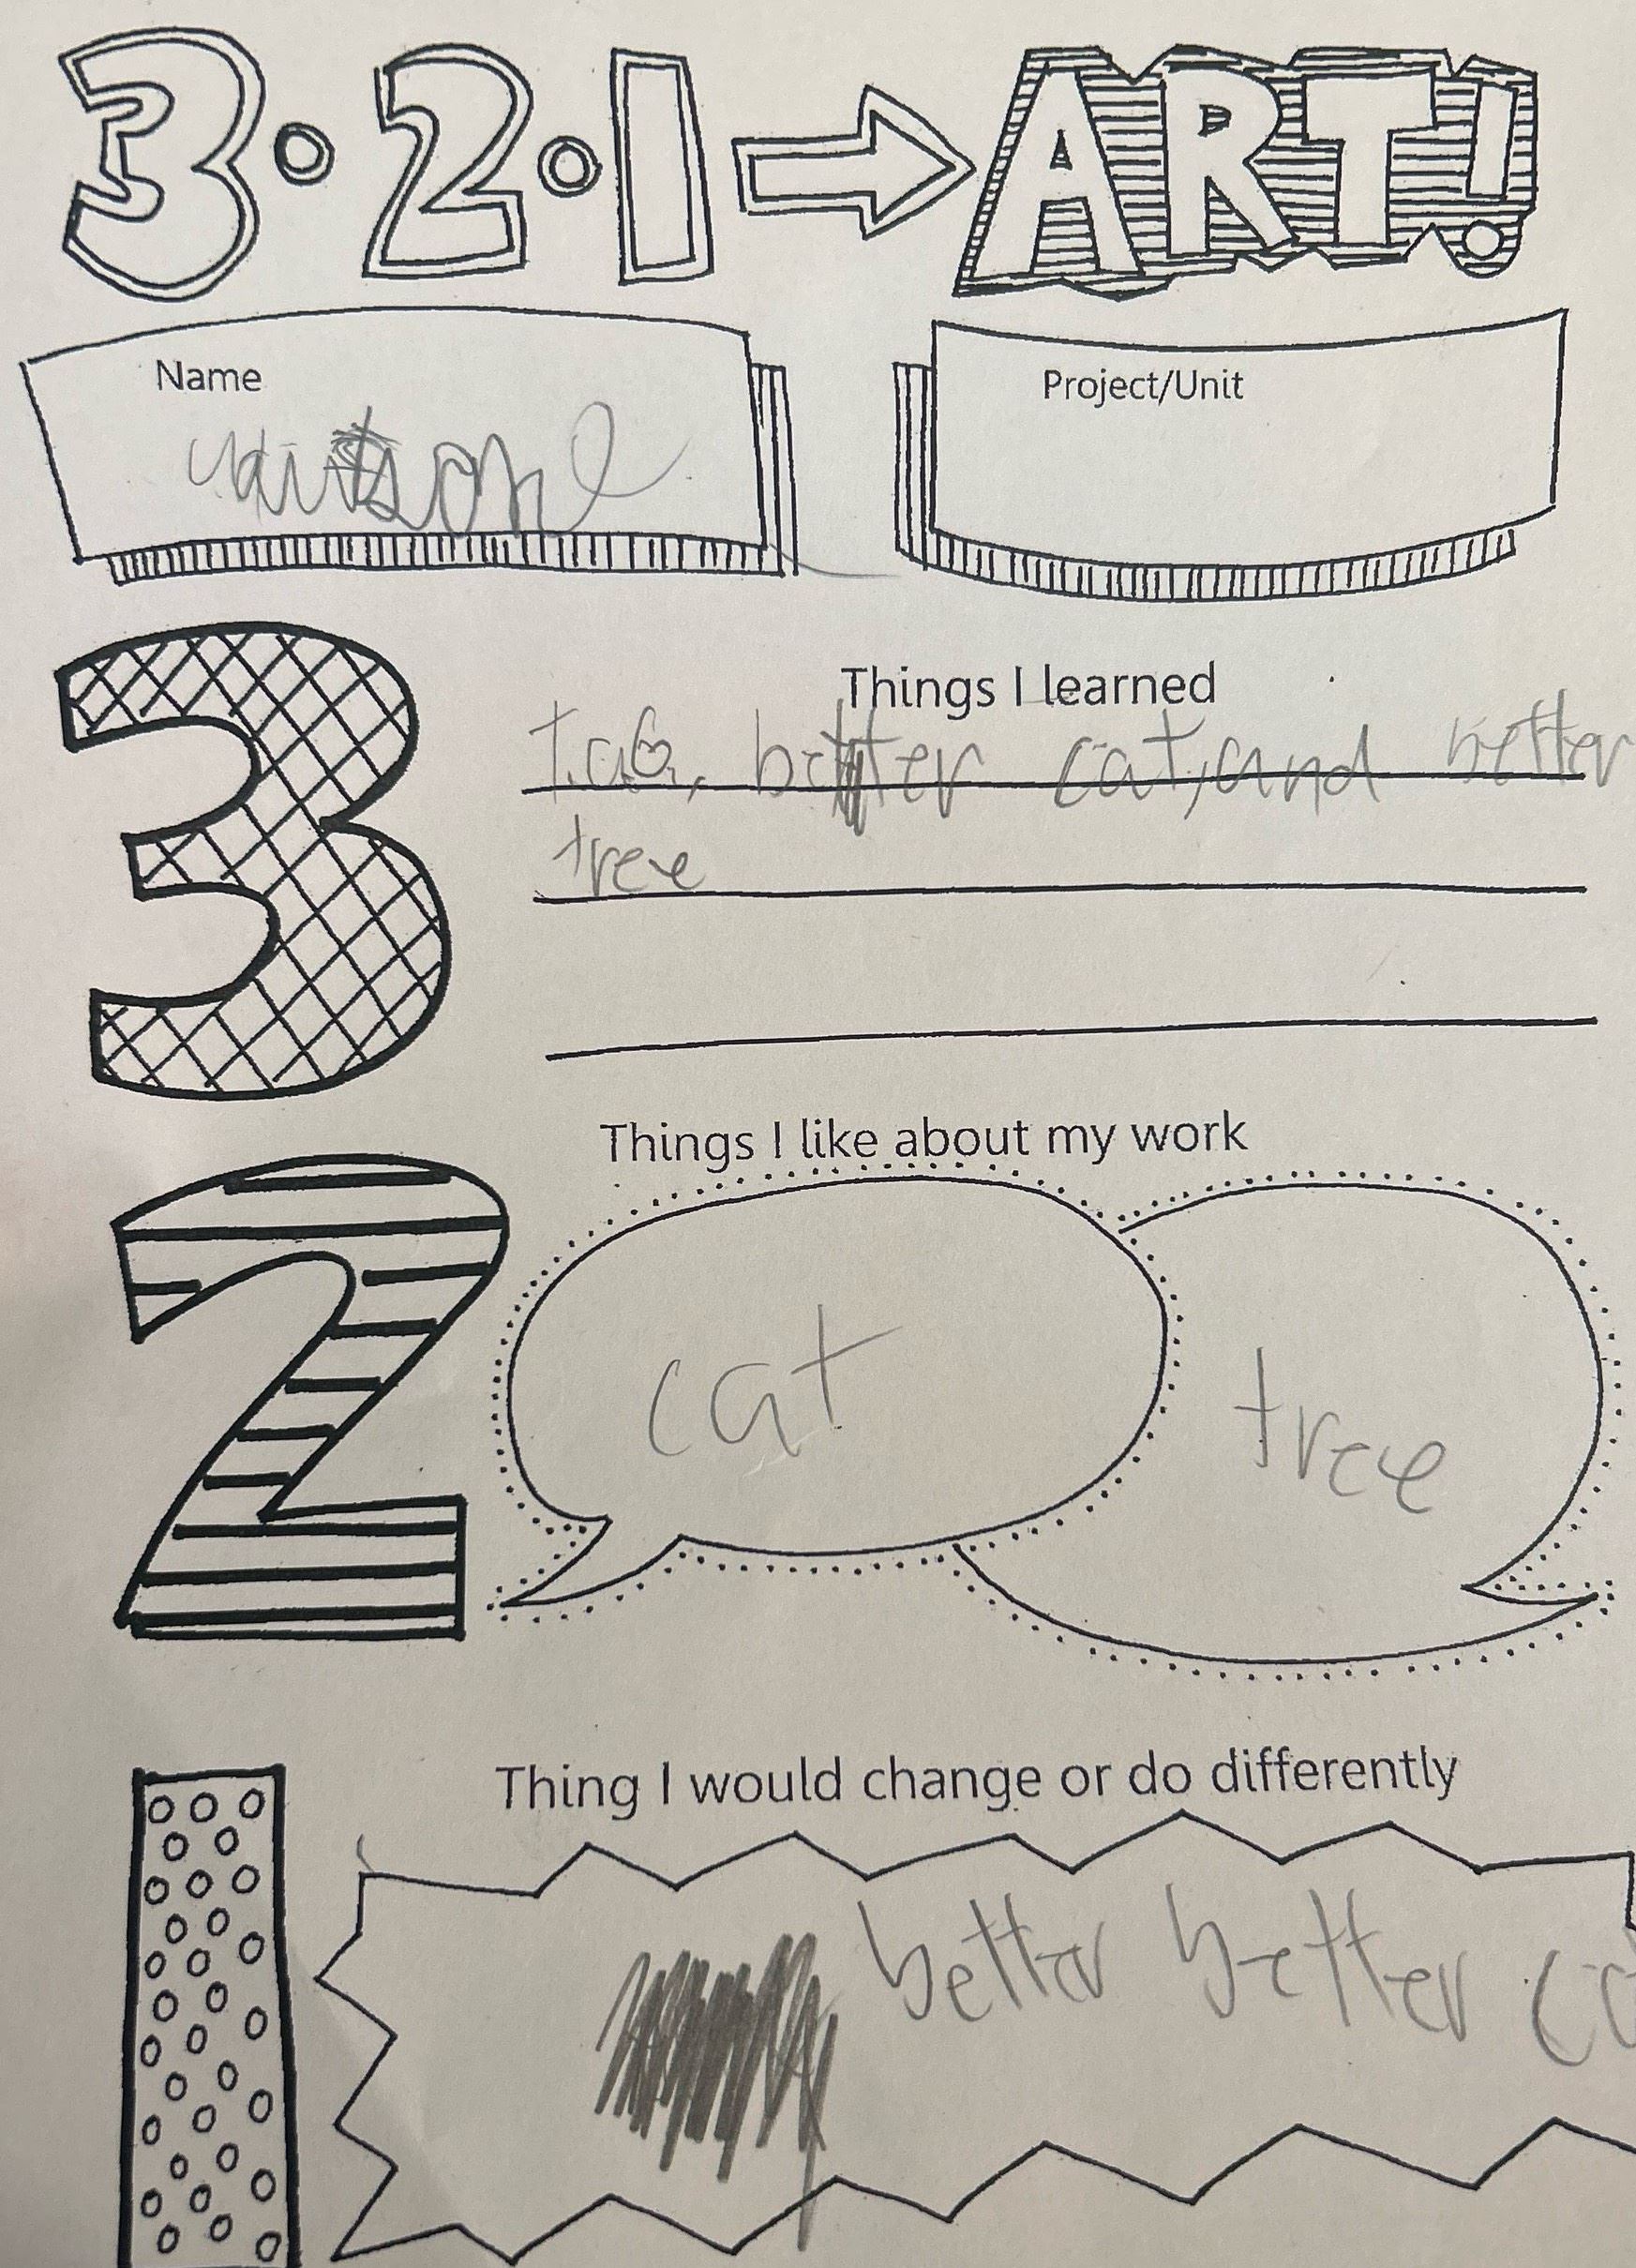 3•2•1→ART!
Name
Project/Unit
3
Things I learned
better cat, and better
tree
Things I like about my work
2
cat
tree
Thing I would change or do differently
1
better better